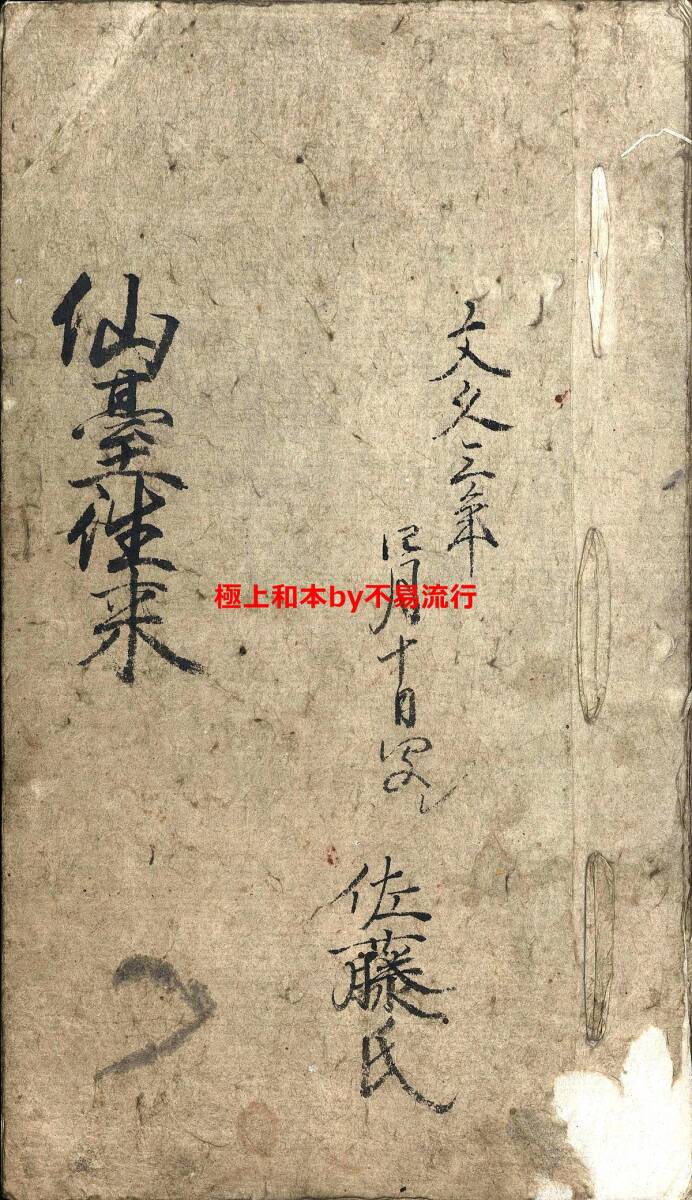 文久三年
四月十日写し
佐藤氏
仙臺往来
極上和本by不易流行